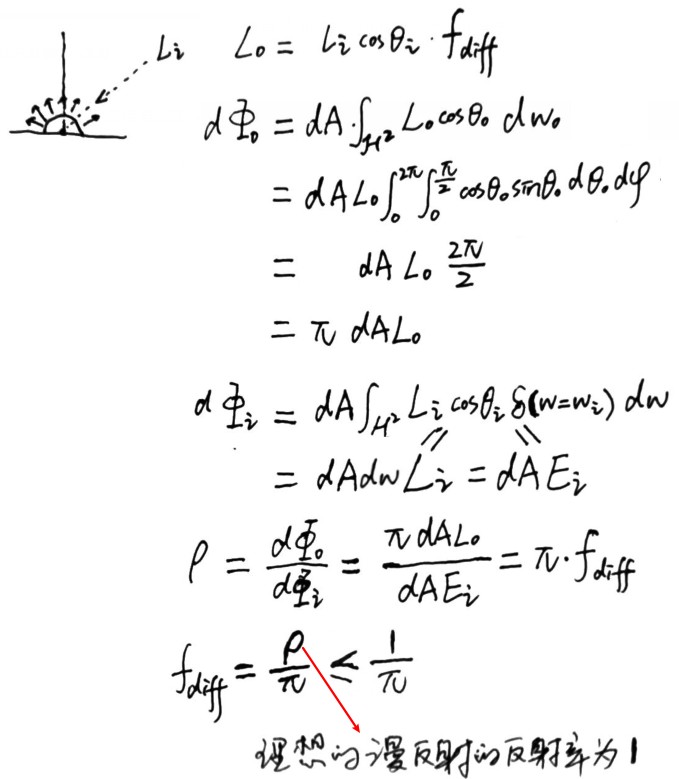 Li
Lo = Li cosθi · fdiff
dΦo = dA·∫H² Lo cosθo dwo
= dA Lo ∫₀^2π ∫₀^π/2 cosθo sinθo dθo dφ
= dA Lo 2π/2
= π dA Lo
dΦi = dA ∫H² Li cosθi δ(w=wi) dw
= dA dw Li = dA Ei
ρ = dΦo/dΦi = π dA Lo/dA Ei = π·fdiff
fdiff = ρ/π ≤ 1/π
理想的漫反射的反射率为1